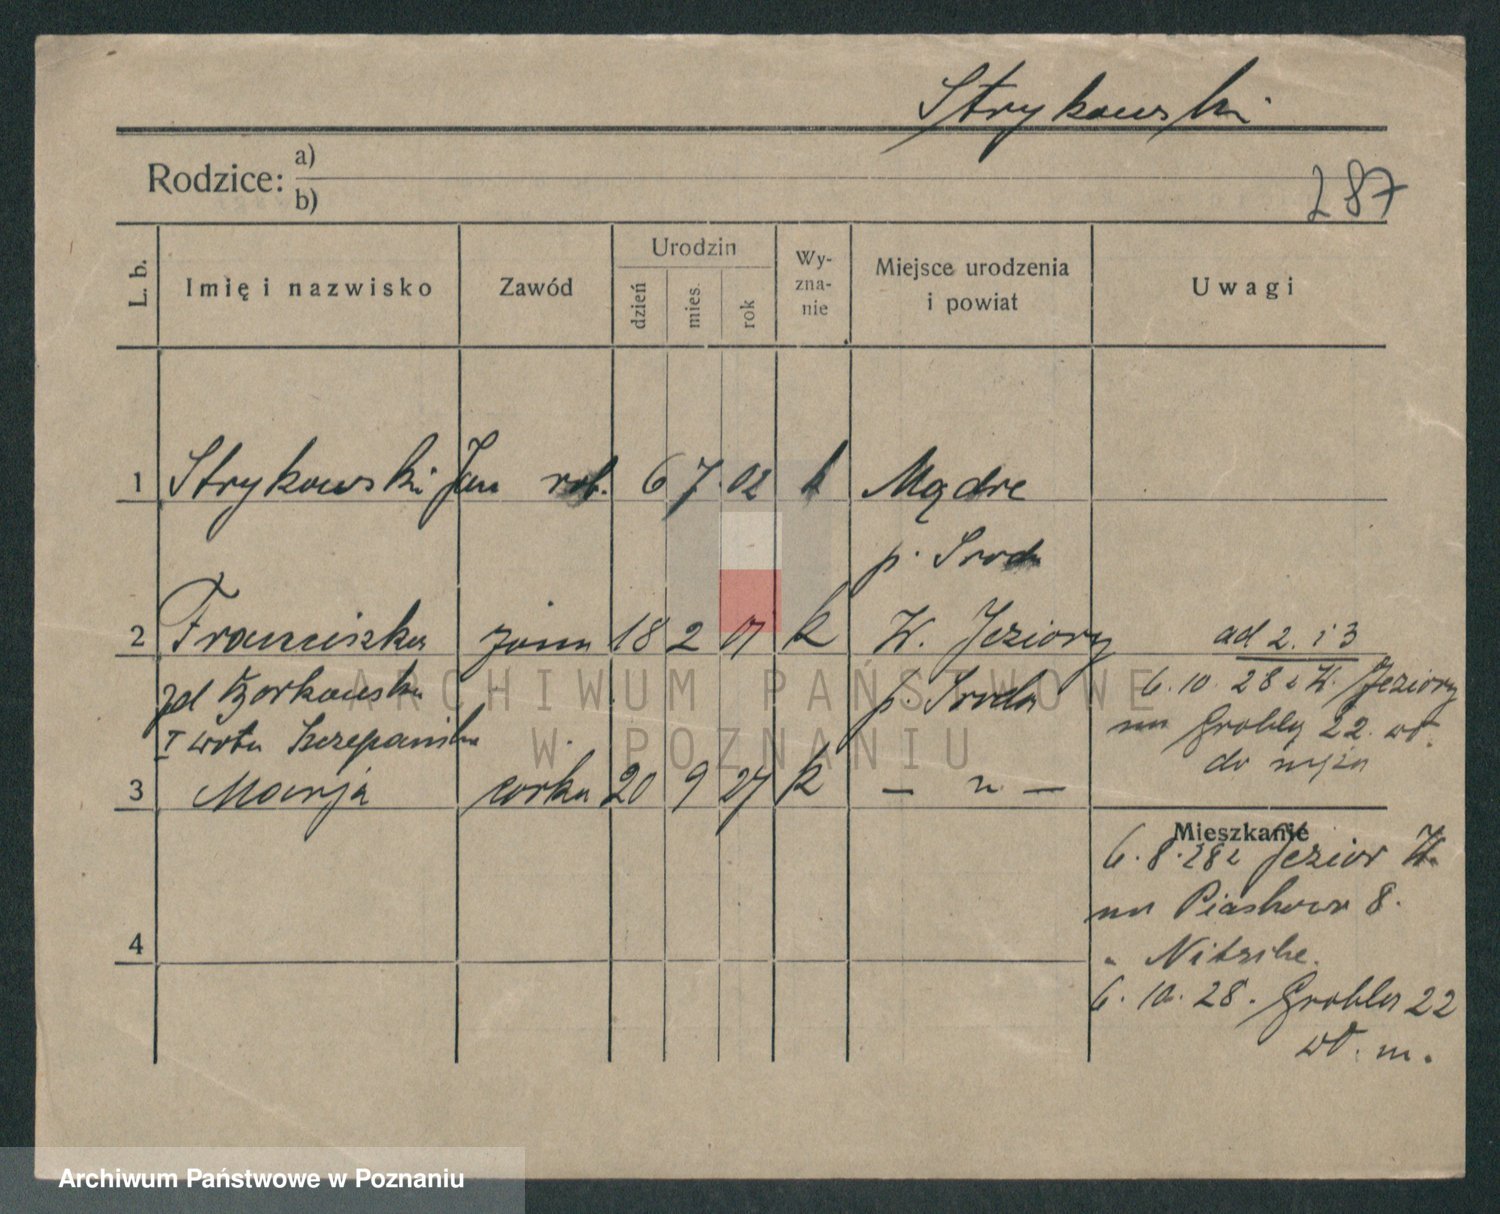 Strykowski
Rodzice: a)
b)
287
L. b.
Imię i nazwisko
Zawód
Urodzin
dzień
mies.
rok
Wy-
zna-
nie
Miejsce urodzenia
i powiat
Uwagi
1 Strykowski Jan rob. 6 7. 02 k Mądre
p. Środa
2 Franciszka żona 18 2 07 k W. Jeziory
ad 2. i 3
zd
p. Środa
6. 10. 28 z W. Jeziory
I woto Szczepańska
na Groblę 22. wł.
do męża
3 Marja corka 20 9 27 k — " —
Mieszkanie
6. 8. 28 z Jezior W.
na Piaskowa 8.
" Nitsche.
4
6. 10. 28. Grobla 22
wł. m.
ARCHIWUM PAŃSTWOWE
W POZNANIU
Archiwum Państwowe w Poznaniu